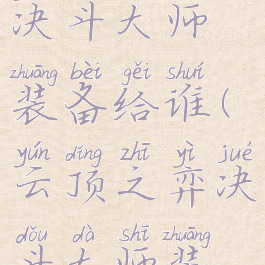 决斗大师
zhuāng bèi gěi shuí
装备给谁(
yún dǐng zhī yì jué
云顶之弈决
dǒu dà shī zhuāng
斗大师装